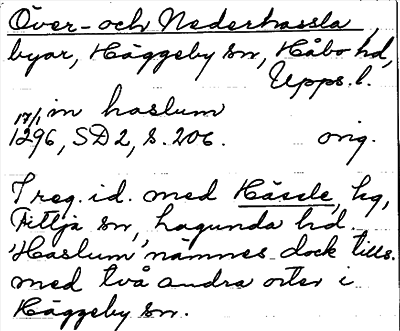 Över- och Nederhassla,
byar, Häggeby sn, Håbo hd,
Upps. l.
in haslum
17/1 1296, SD 2, s. 206. orig.
I reg. id. med Hässle, hg,
Fittja sn, hagunda hd.
'Haslum' nämnes dock tills.
med två andra orter i
Häggeby sn.